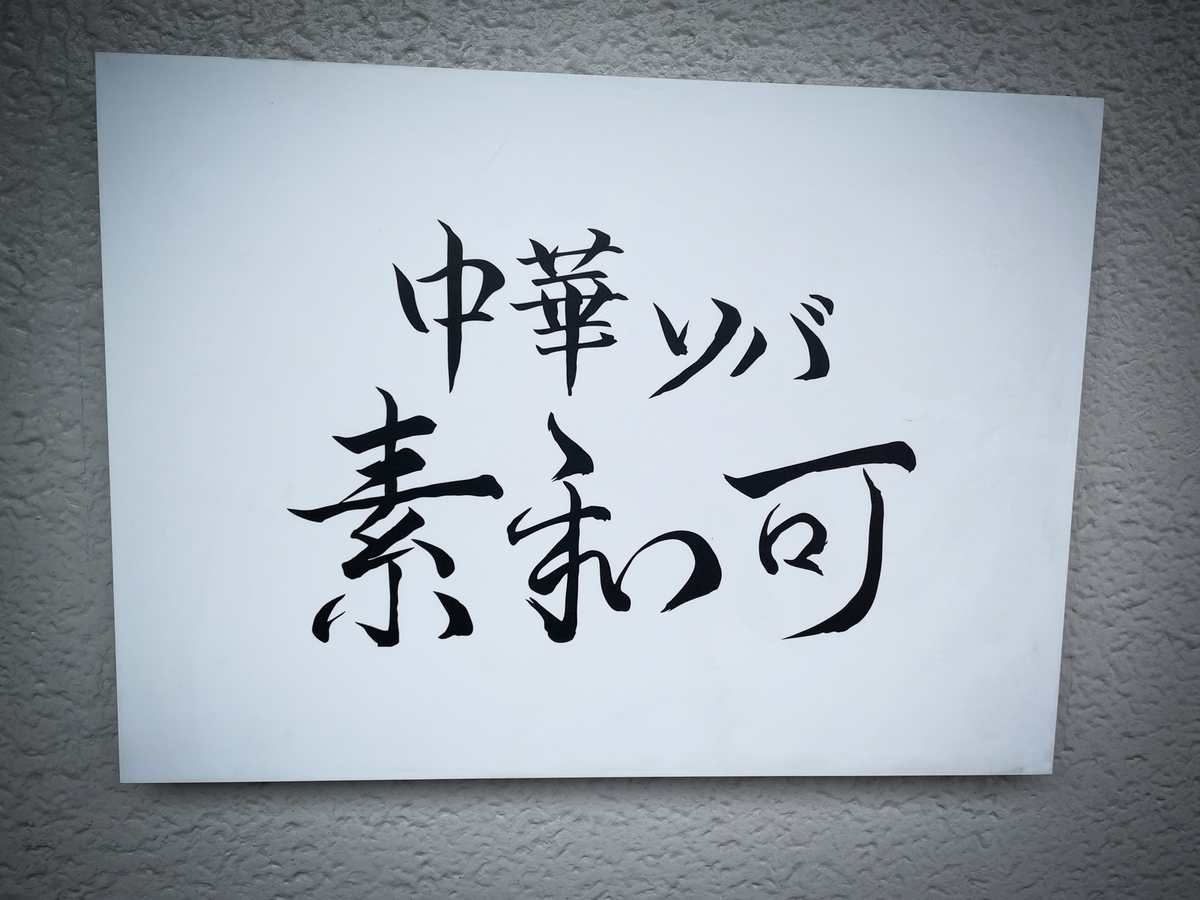 中華ソバ
素和可